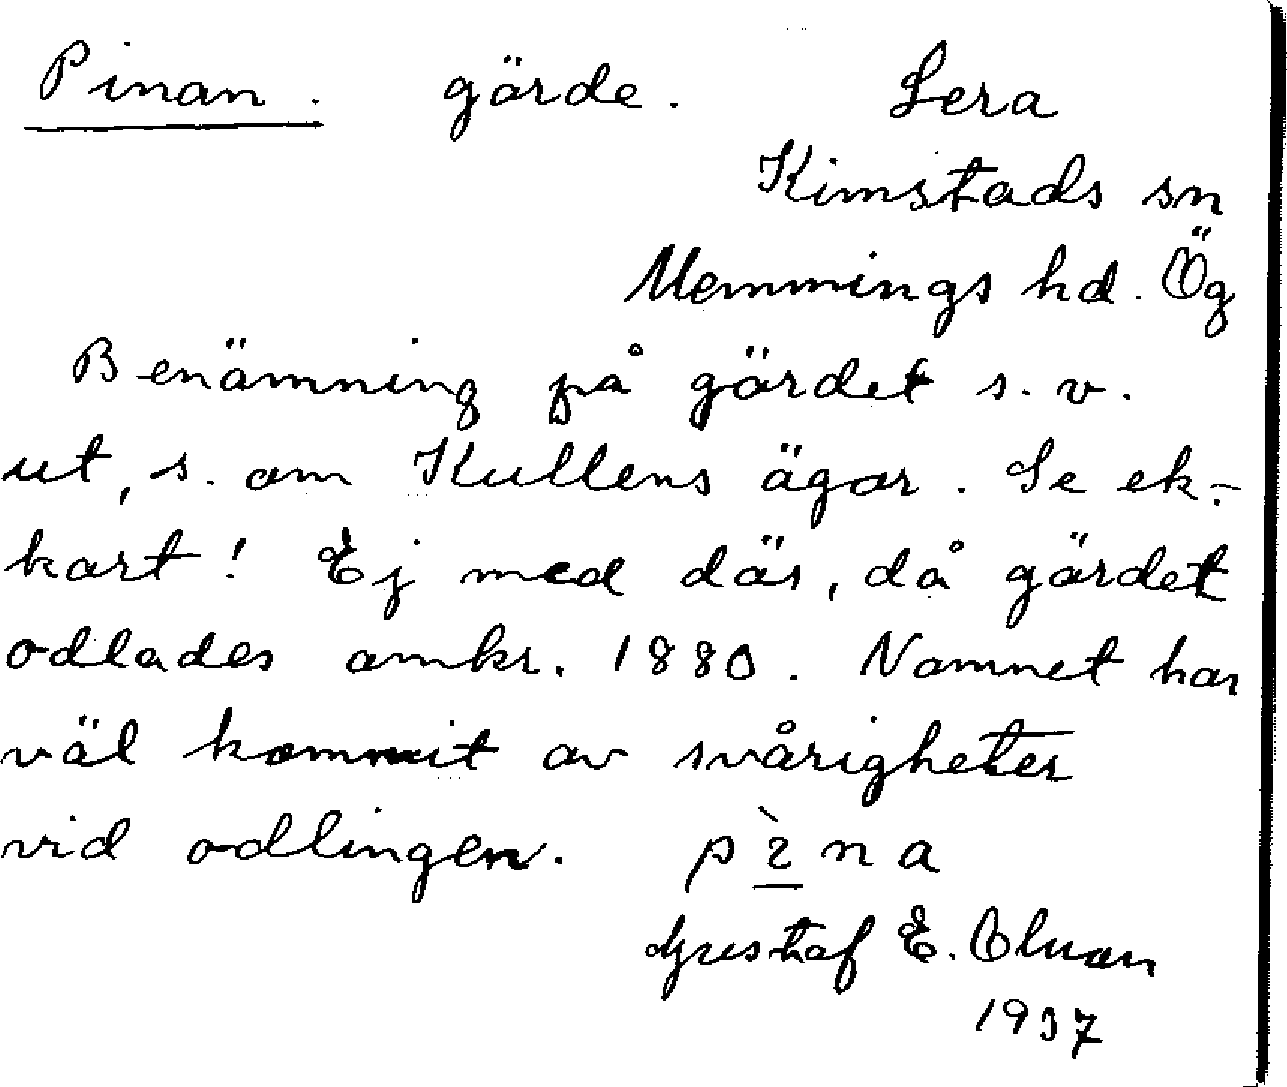 Pinan. gärde. Lera
Kimstads sn
Memmings hd. Ög
Benämning på gärdet s. v.
ut, s. om Kullens ägor. Se ek.-
kart! Ej med där, då gärdet
odlades omkr. 1880. Namnet har
väl kommit av svårigheter
vid odlingen. p ì n a
Gustaf E.
1937